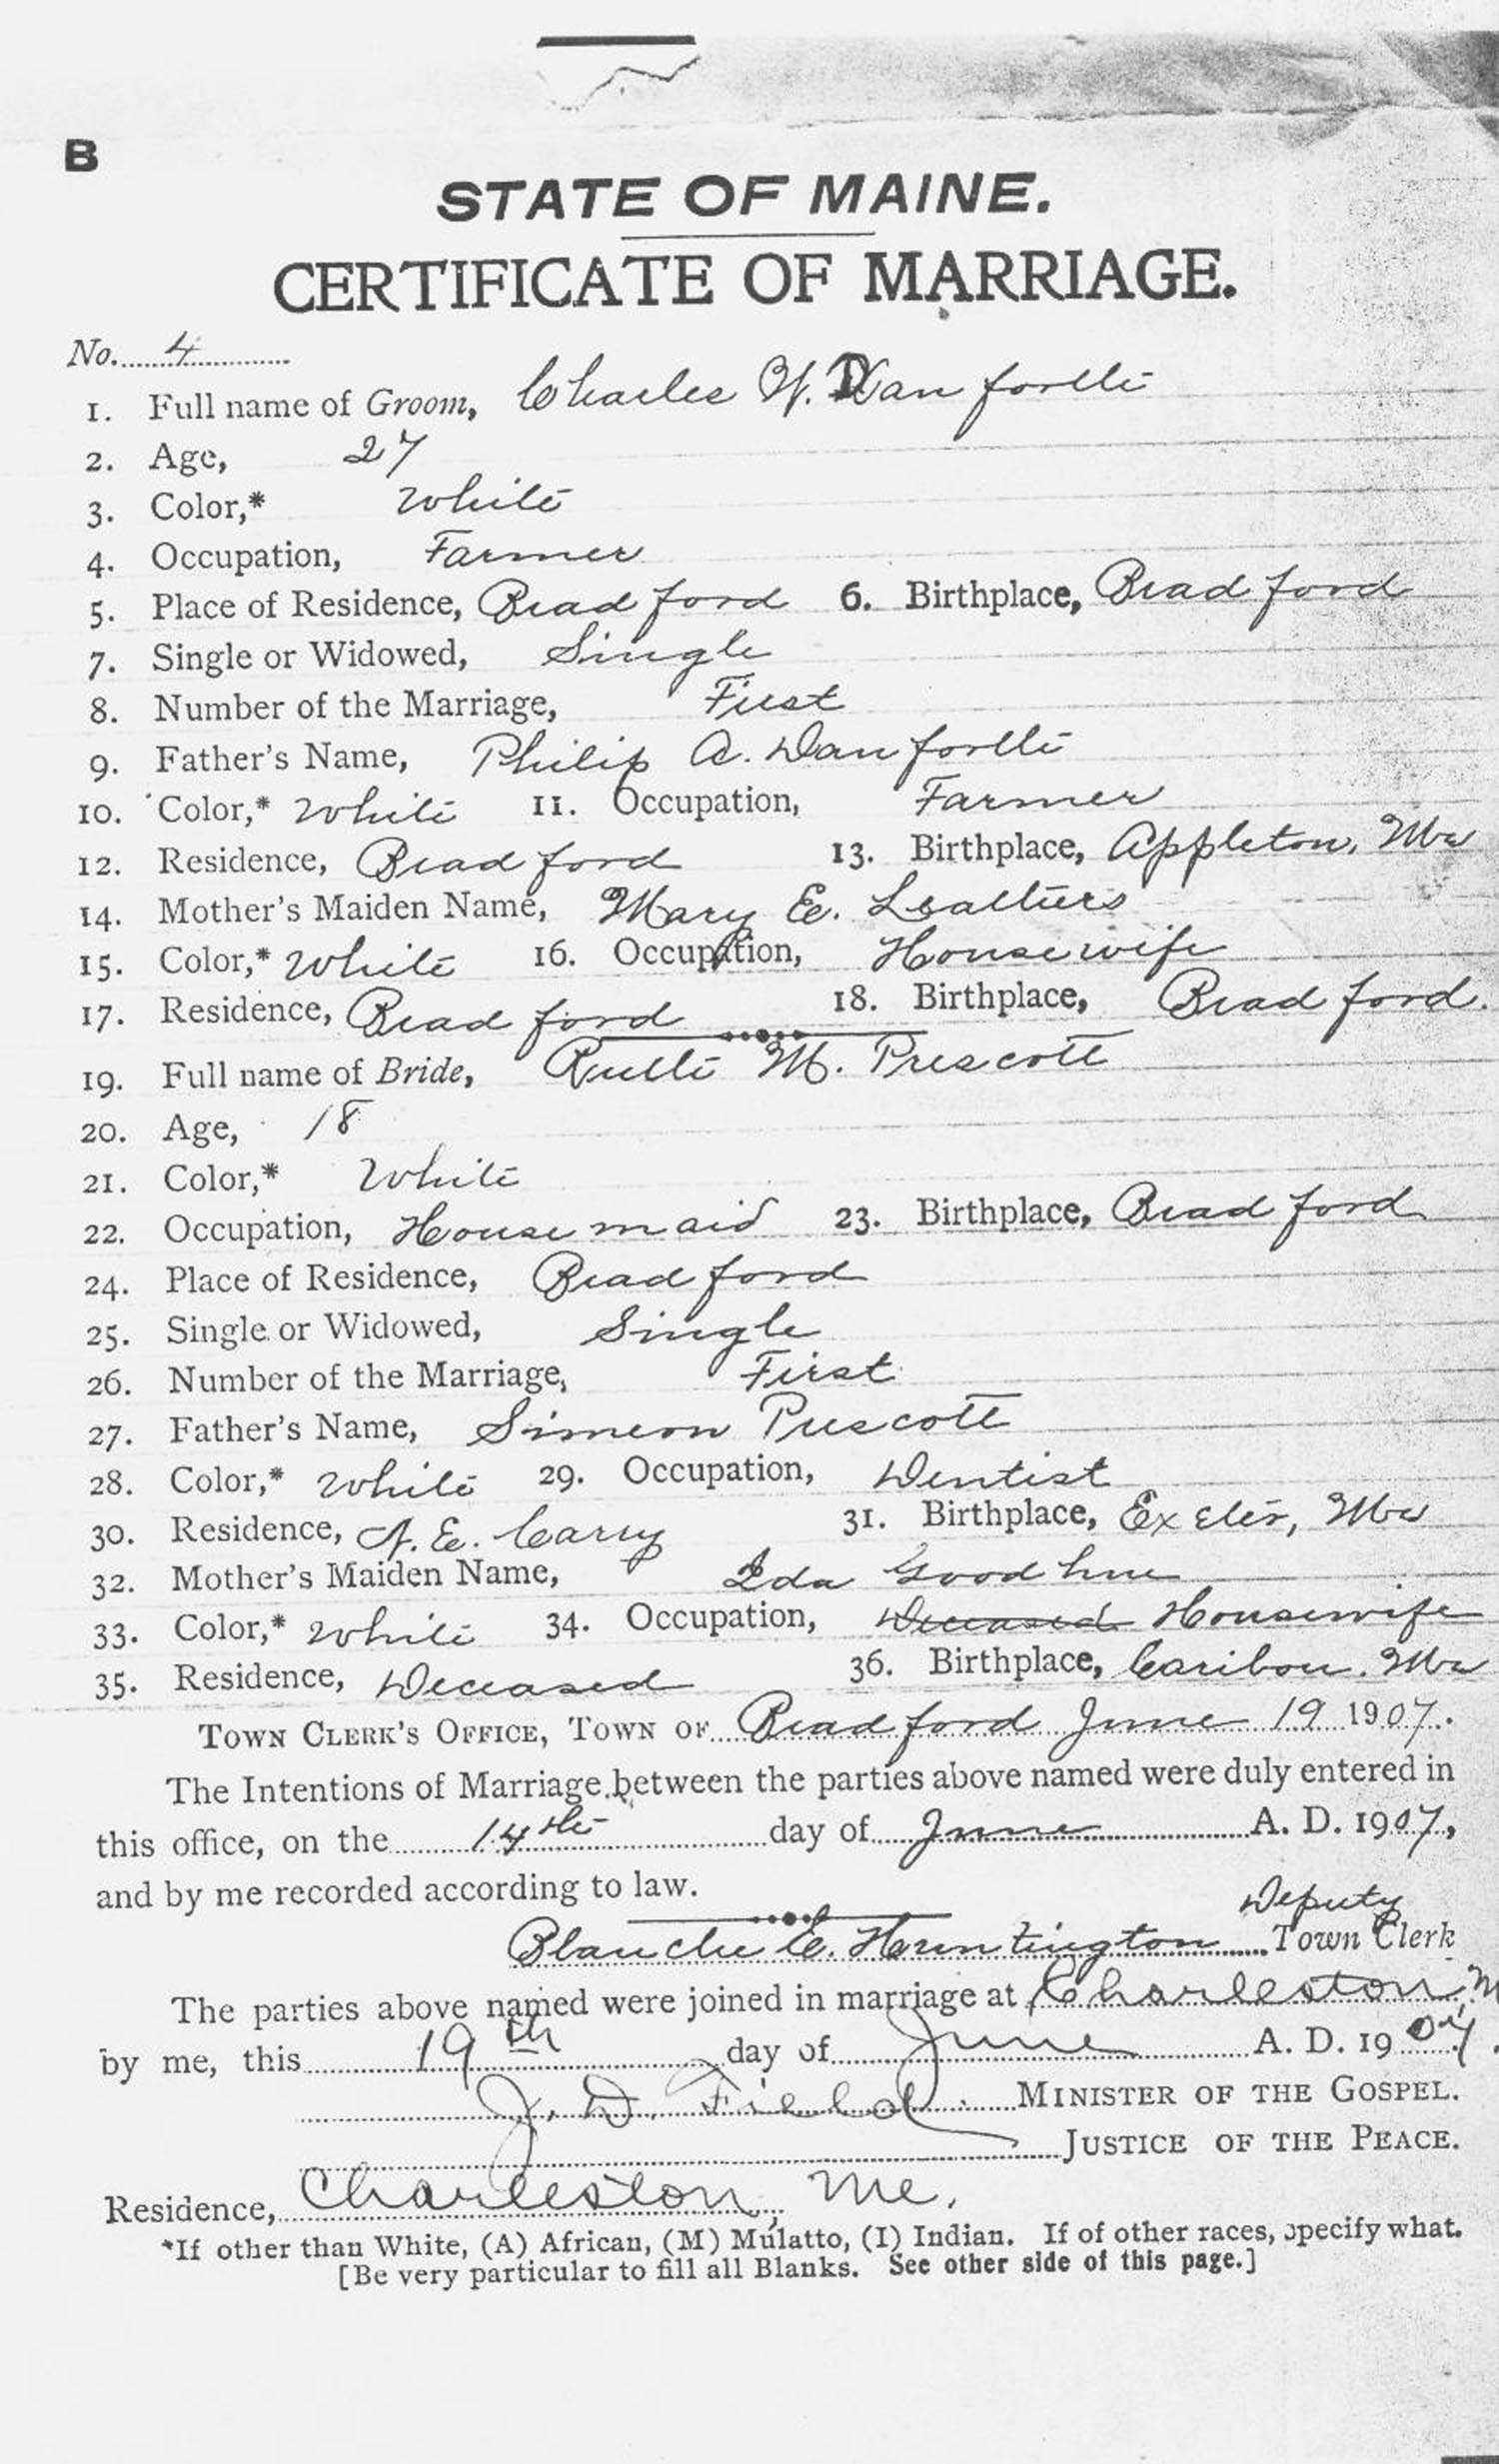 B
STATE OF MAINE.
CERTIFICATE OF MARRIAGE.
No. 4
1. Full name of Groom, Charles W. Danforth
2. Age, 27
3. Color,* White
4. Occupation, Farmer
5. Place of Residence, Bradford 6. Birthplace, Bradford
7. Single or Widowed, Single
8. Number of the Marriage, First
9. Father's Name, Philip A. Danforth
10. Color,* White 11. Occupation, Farmer
12. Residence, Bradford 13. Birthplace, Appleton, Me
14. Mother's Maiden Name, Mary E. Leathers
15. Color,* White 16. Occupation, Housewife
17. Residence, Bradford 18. Birthplace, Bradford.
19. Full name of Bride, Ruth M. Prescott
20. Age, 18
21. Color,* White
22. Occupation, Housemaid 23. Birthplace, Bradford
24. Place of Residence, Bradford
25. Single or Widowed, Single
26. Number of the Marriage, First
27. Father's Name, Simeon Prescott
28. Color,* White 29. Occupation, Dentist
30. Residence, N. E. Carry 31. Birthplace, Exeter, Me
32. Mother's Maiden Name, Ida Goodhue
33. Color,* White 34. Occupation, Deceased Housewife
35. Residence, Deceased 36. Birthplace, Caribou. Me
TOWN CLERK'S OFFICE, TOWN OF Bradford June 19 1907.
The Intentions of Marriage between the parties above named were duly entered in
this office, on the 14th day of June A. D. 1907,
and by me recorded according to law.
Deputy
Blanche E. Huntington Town Clerk
The parties above named were joined in marriage at Charleston, M
by me, this 19th day of June A. D. 1907.
J. D. Field MINISTER OF THE GOSPEL.
JUSTICE OF THE PEACE.
Residence, Charleston, Me.
*If other than White, (A) African, (M) Mulatto, (I) Indian. If of other races, specify what.
[Be very particular to fill all Blanks. See other side of this page.]